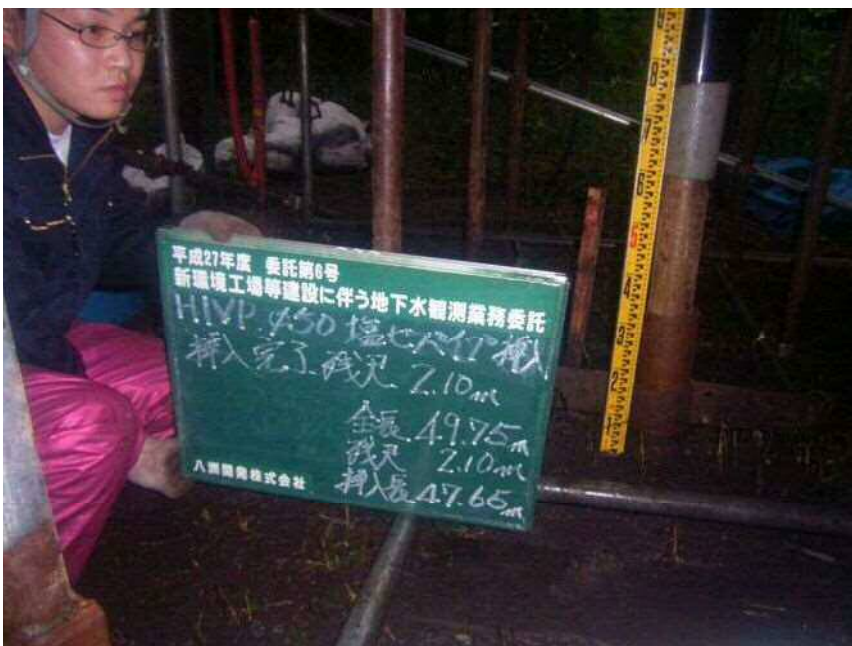 平成27年度 委託第6号
新環境工場等建設に伴う地下水観測業務委託
HIVP φ50 塩ビパイプ 挿入
挿入完了 残尺 2.10m
全長 49.75m
残尺 2.10m
挿入長 47.65m
八洲開発株式会社
8
7
6
5
4
3
2
1